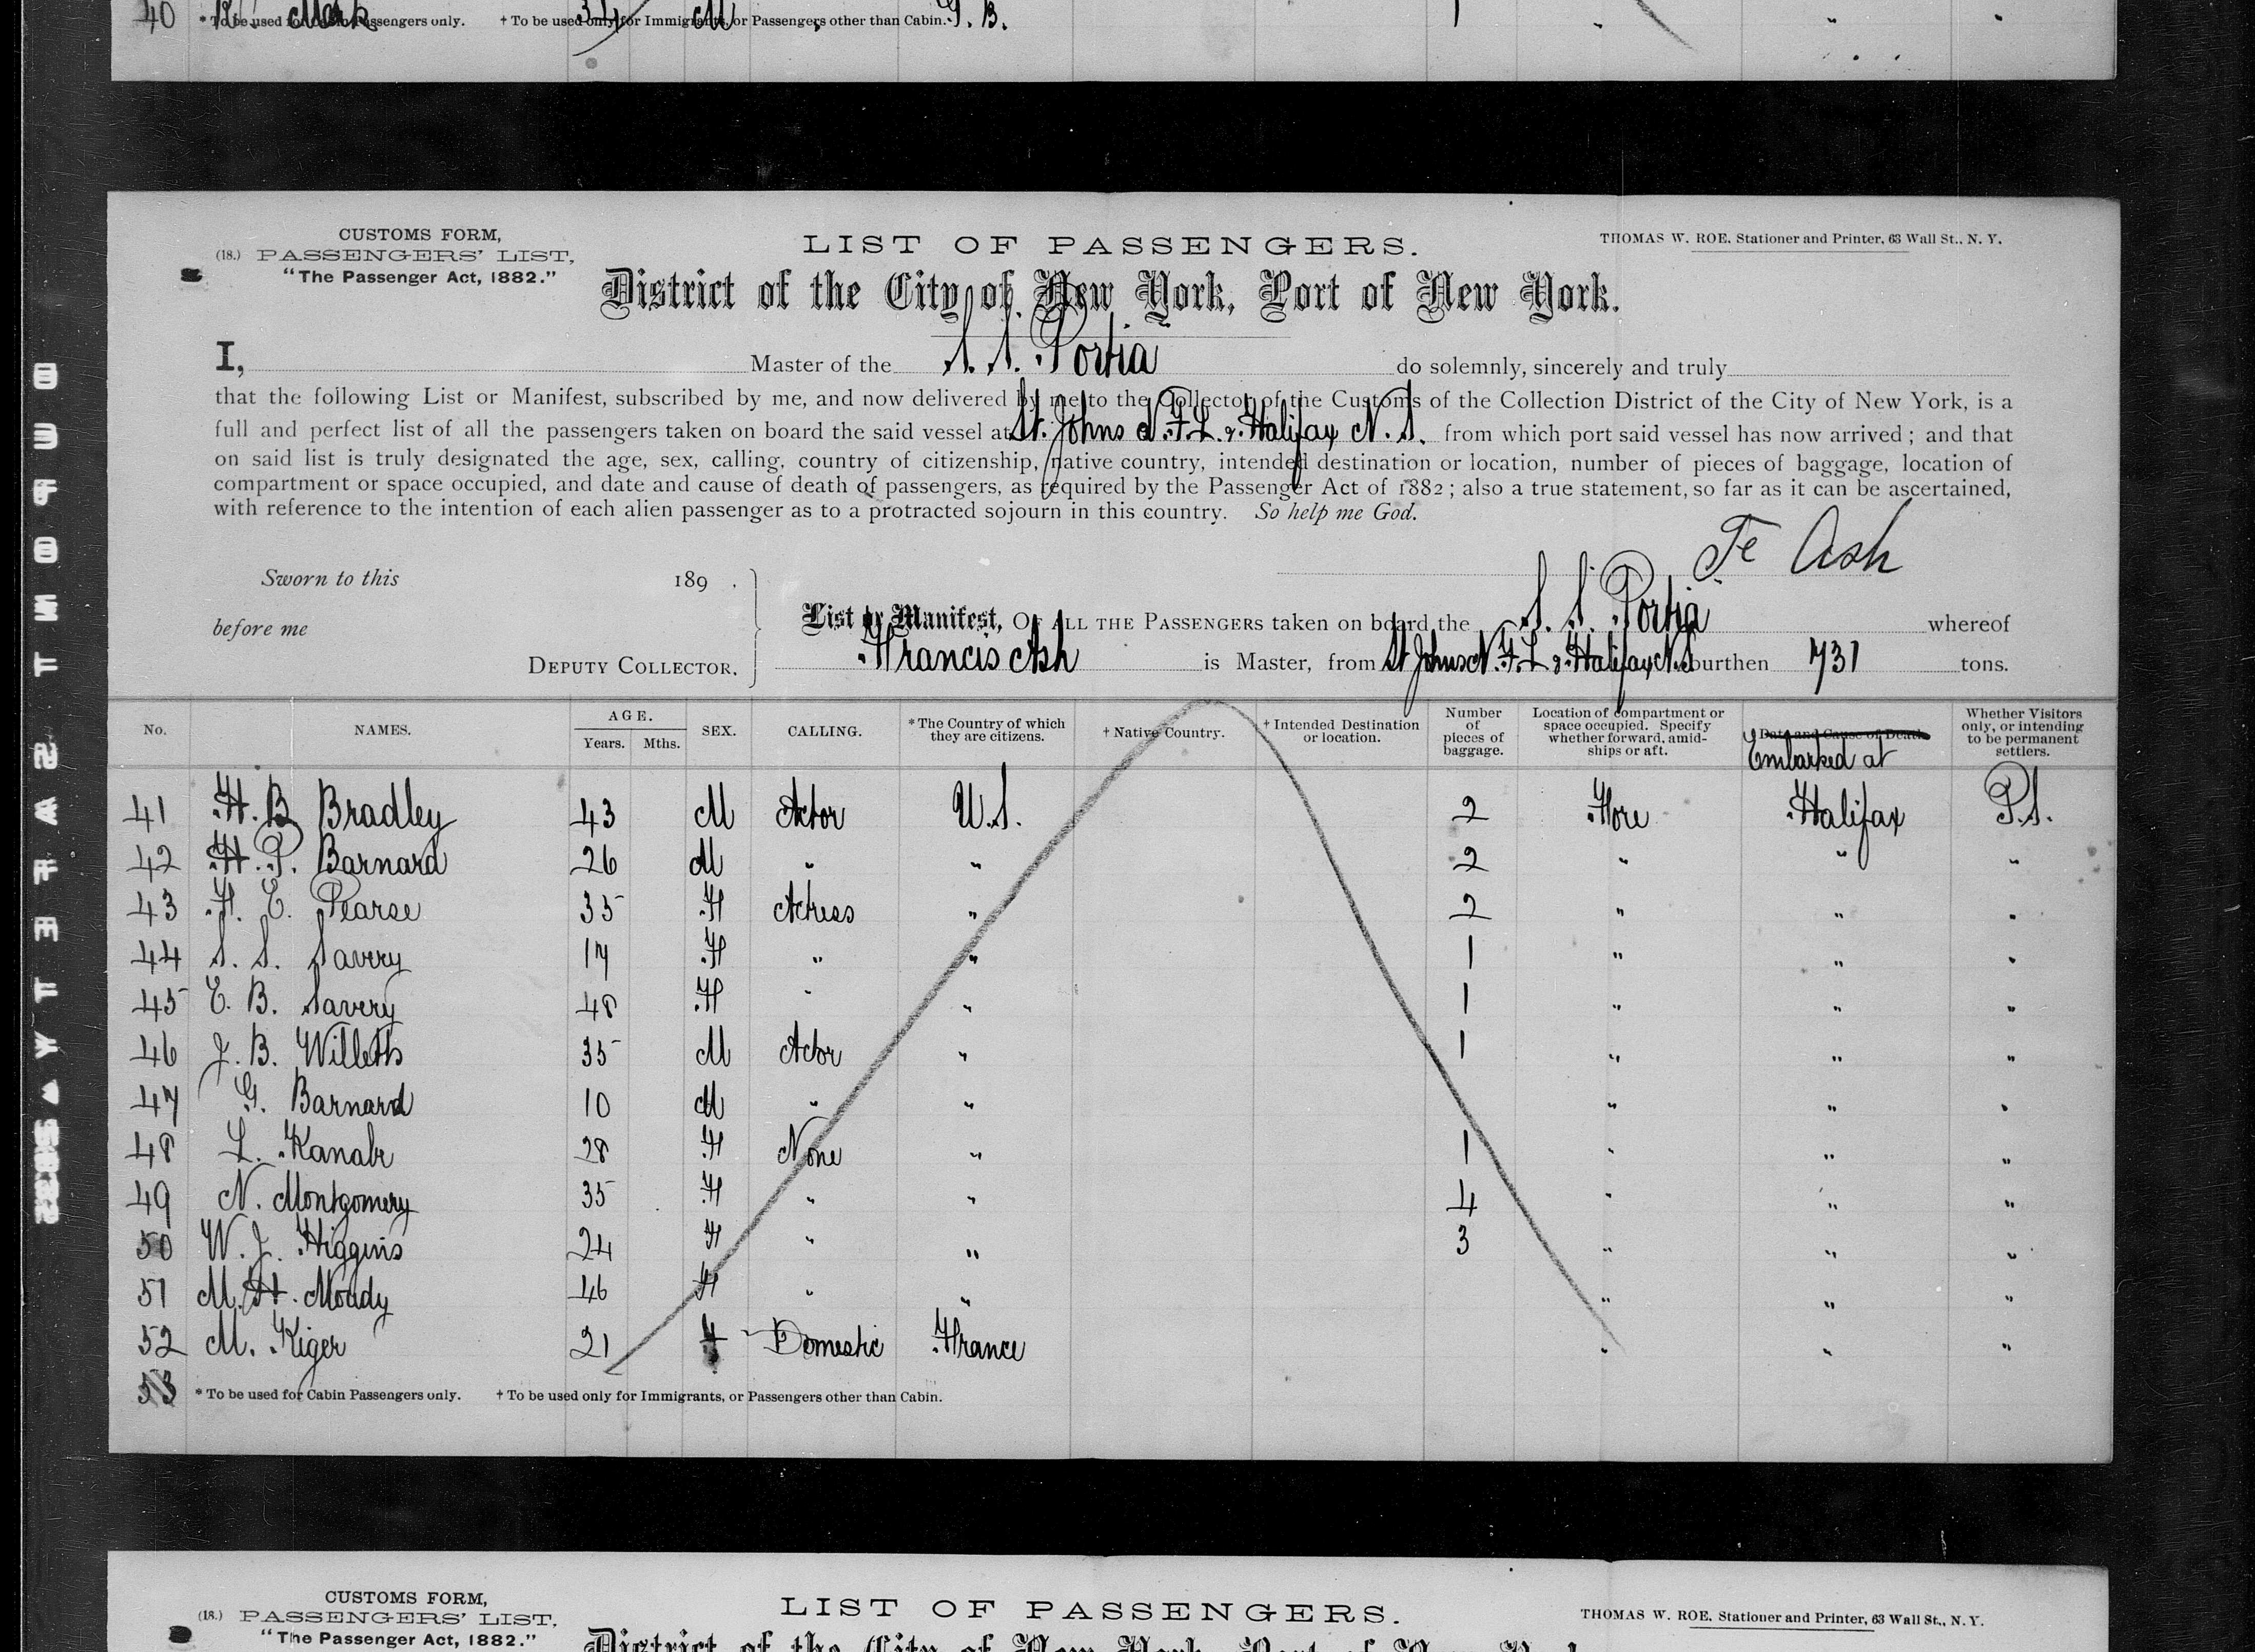 40 Mark 34 M " G. B. 1 " " "
* To be used for Cabin Passengers only. † To be used only for Immigrants, or Passengers other than Cabin.
CUSTOMS FORM,
(18.) PASSENGERS' LIST,
"The Passenger Act, 1882."
LIST OF PASSENGERS.
THOMAS W. ROE, Stationer and Printer, 63 Wall St., N. Y.
District of the City of New York, Port of New York.
I, Master of the S. S. Portia do solemnly, sincerely and truly
that the following List or Manifest, subscribed by me, and now delivered by me to the Collector of the Customs of the Collection District of the City of New York, is a
full and perfect list of all the passengers taken on board the said vessel at St. Johns N.F.L. & Halifax N.S. from which port said vessel has now arrived; and that
on said list is truly designated the age, sex, calling, country of citizenship, native country, intended destination or location, number of pieces of baggage, location of
compartment or space occupied, and date and cause of death of passengers, as required by the Passenger Act of 1882; also a true statement, so far as it can be ascertained,
with reference to the intention of each alien passenger as to a protracted sojourn in this country. So help me God.
Ash
Sworn to this 189 .
before me
DEPUTY COLLECTOR.
List or Manifest, OF ALL THE PASSENGERS taken on board the S. S. Portia whereof
Francis Ash is Master, from St Johns N.F.L & Halifax N.S burthen 731 tons.
No. NAMES. AGE. Years. Mths. SEX. CALLING. * The Country of which they are citizens. † Native Country. † Intended Destination or location. Number of pieces of baggage. Location of compartment or space occupied. Specify whether forward, amidships or aft. Date and Cause of Death Embarked at Whether Visitors only, or intending to be permanent settlers.
41 H. B Bradley 43 M Actor U.S. 2 Fore Halifax P.S.
42 H. P. Barnard 26 M " " 2 " " "
43 F. E. Pearse 35 F Actress " 2 " " "
44 S. S. Savery 17 F " " 1 " " "
45 E. B. Savery 48 F " " 1 " " "
46 J. B. Willetts 35 M Actor " 1 " " "
47 G. Barnard 10 M " " " " "
48 L. 28 F None " 1 " " "
49 N. Montgomery 35 F " " 4 " " "
50 W. J. Higgins 24 F " " 3 " " "
51 M. H. Moady 46 F " " " " "
52 M. Kiger 21 F Domestic France " " "
53
* To be used for Cabin Passengers only. † To be used only for Immigrants, or Passengers other than Cabin.
CUSTOMS FORM,
(18.) PASSENGERS' LIST,
"The Passenger Act, 1882."
LIST OF PASSENGERS.
THOMAS W. ROE, Stationer and Printer, 63 Wall St., N. Y.
District of the City of New York, Port of New York